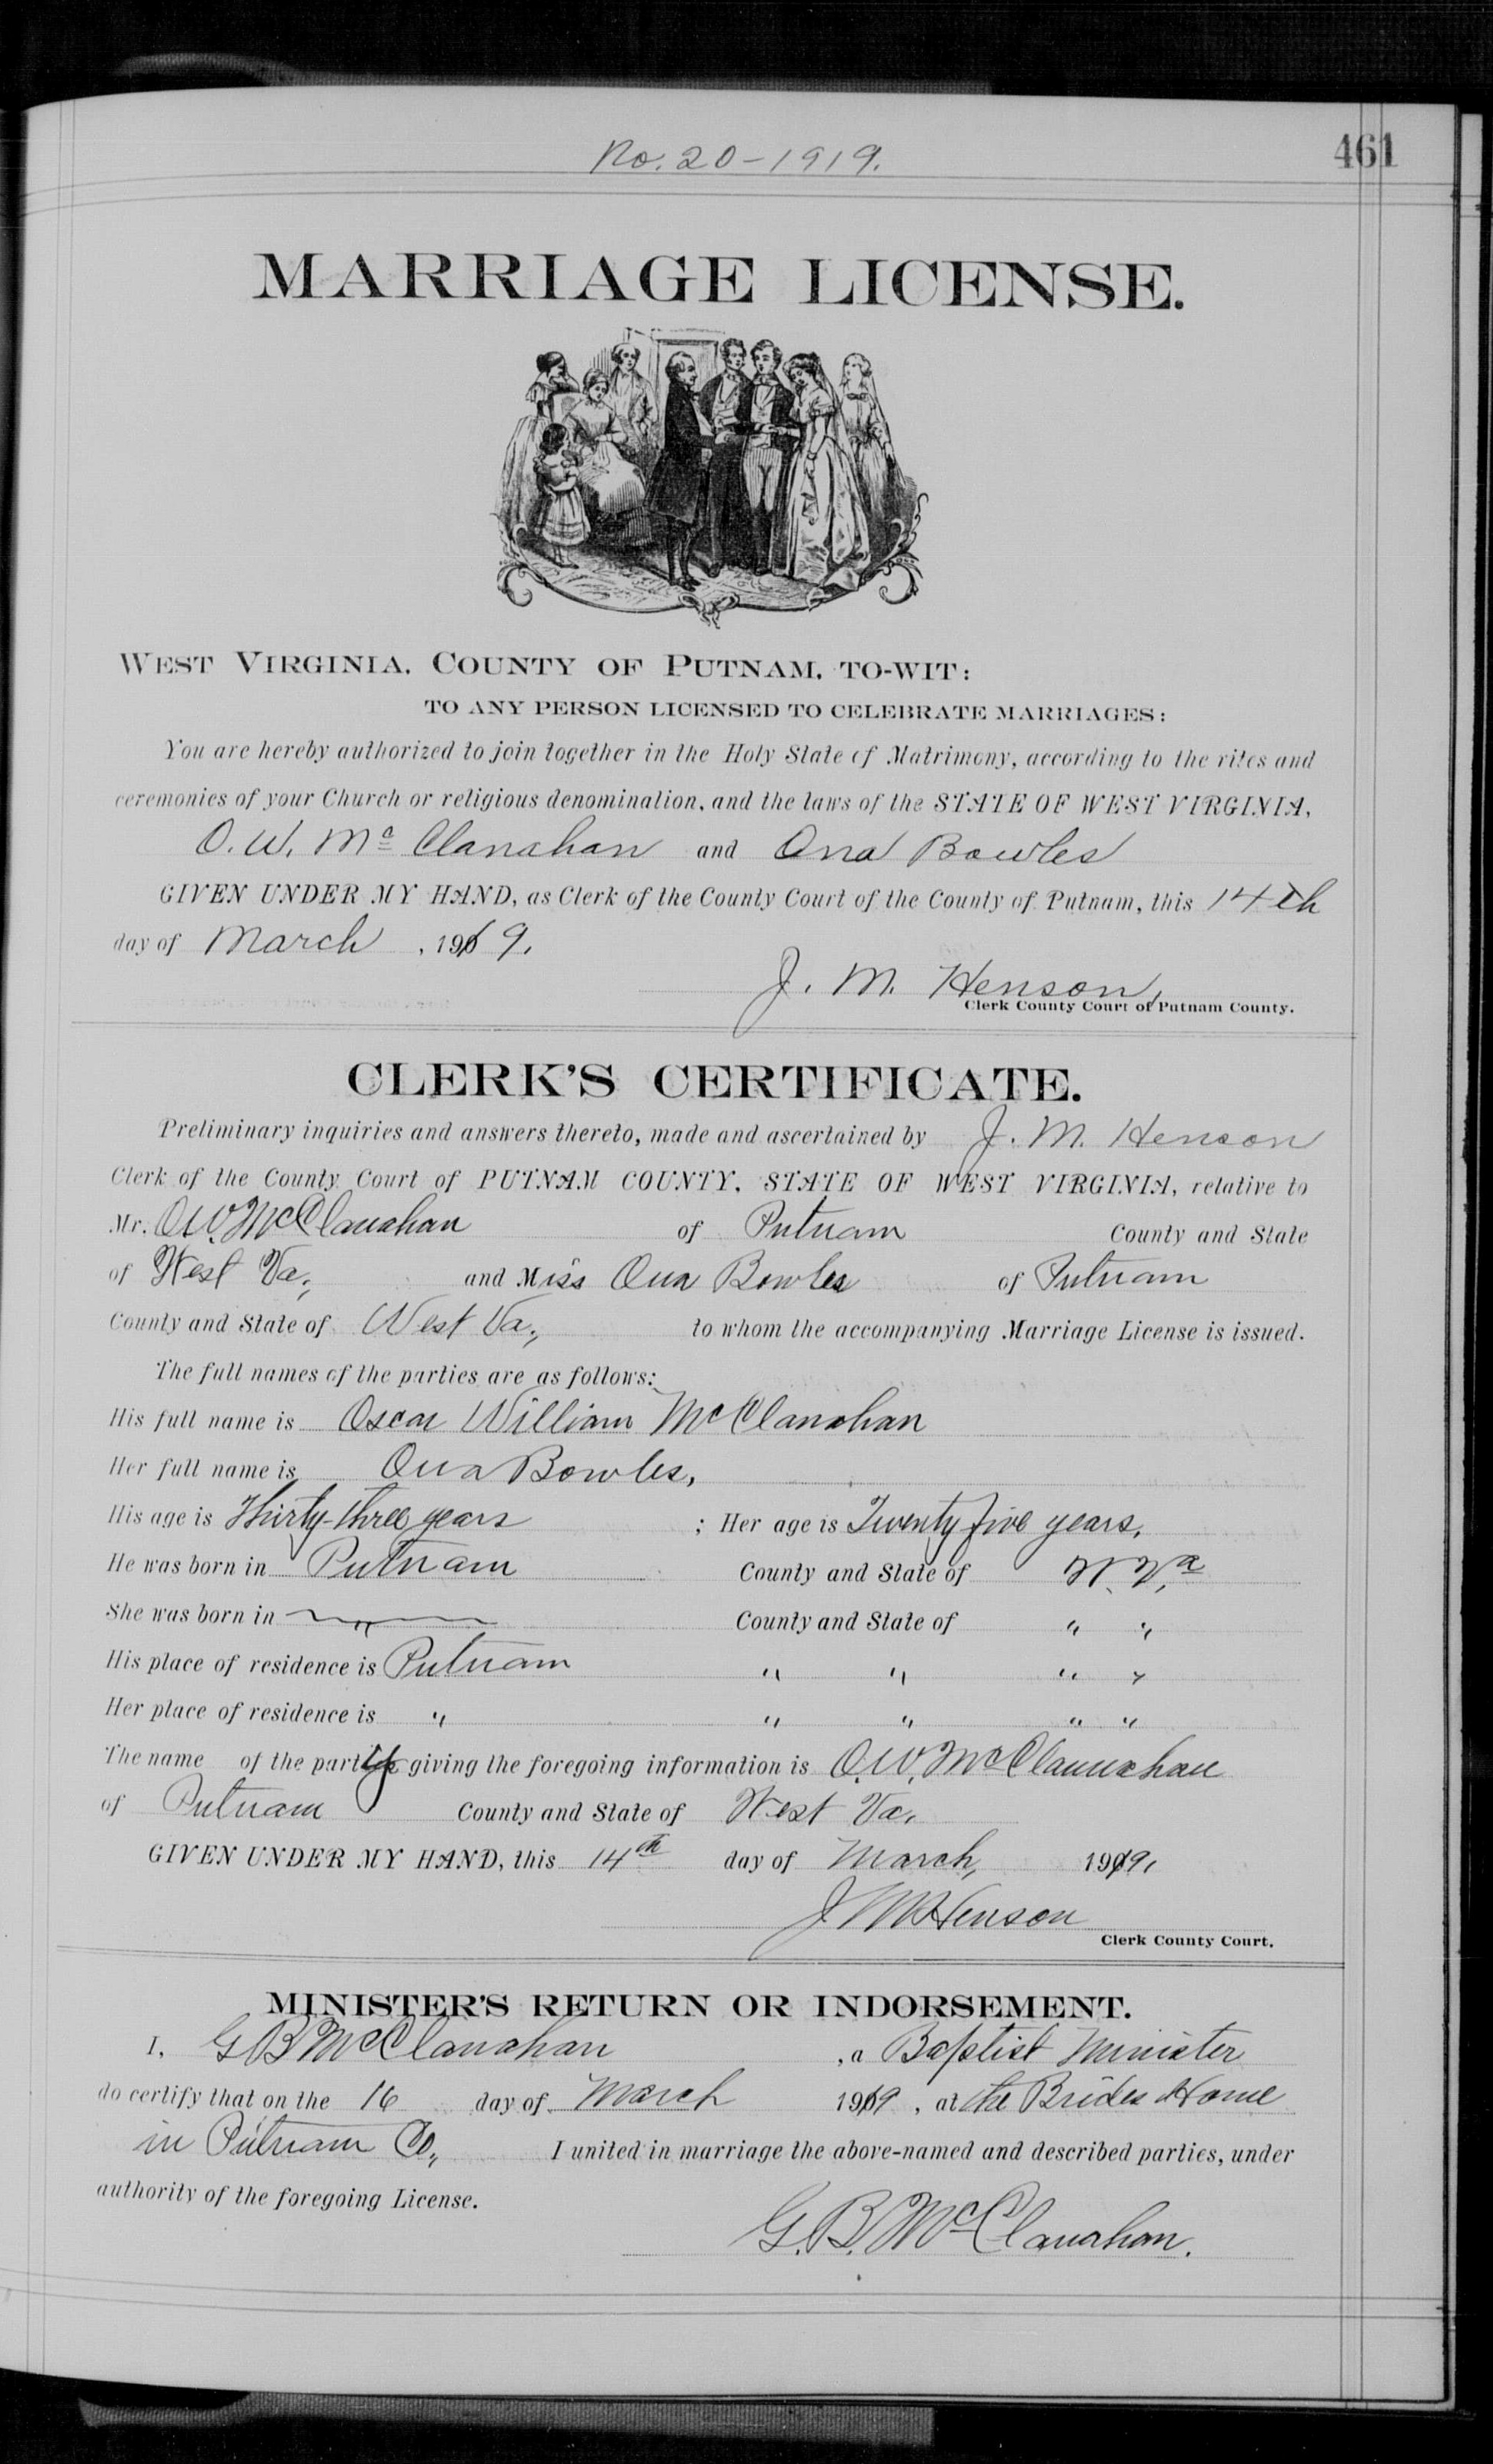 No. 20-1919.
461
MARRIAGE LICENSE.
WEST VIRGINIA, COUNTY OF PUTNAM, TO-WIT:
TO ANY PERSON LICENSED TO CELEBRATE MARRIAGES:
You are hereby authorized to join together in the Holy State of Matrimony, according to the rites and
ceremonies of your Church or religious denomination, and the laws of the STATE OF WEST VIRGINIA,
O. W. McClanahan and Ona Bowles
GIVEN UNDER MY HAND, as Clerk of the County Court of the County of Putnam, this 14th
day of March, 1919.
J. M. Henson,
Clerk County Court of Putnam County.
CLERK'S CERTIFICATE.
Preliminary inquiries and answers thereto, made and ascertained by J. M. Henson
Clerk of the County Court of PUTNAM COUNTY, STATE OF WEST VIRGINIA, relative to
Mr. O.W. McClanahan of Putnam County and State
of West Va., and Miss Ona Bowles of Putnam
County and State of West Va., to whom the accompanying Marriage License is issued.
The full names of the parties are as follows:
His full name is Oscar William McClanahan
Her full name is Ona Bowles,
His age is Thirty-three years ; Her age is Twenty five years.
He was born in Putnam County and State of W. Va
She was born in " County and State of " "
His place of residence is Putnam " " " "
Her place of residence is " " " " "
The name of the party giving the foregoing information is O.W. McClannahan
of Putnam County and State of West Va.
GIVEN UNDER MY HAND, this 14th day of March, 1919,
J M Henson
Clerk County Court.
MINISTER'S RETURN OR INDORSEMENT.
I, G B McClanahan, a Baptist Minister
do certify that on the 16 day of March 1919, at the Brides Home
in Putnam Co., I united in marriage the above-named and described parties, under
authority of the foregoing License.
G. B. McClanahan.